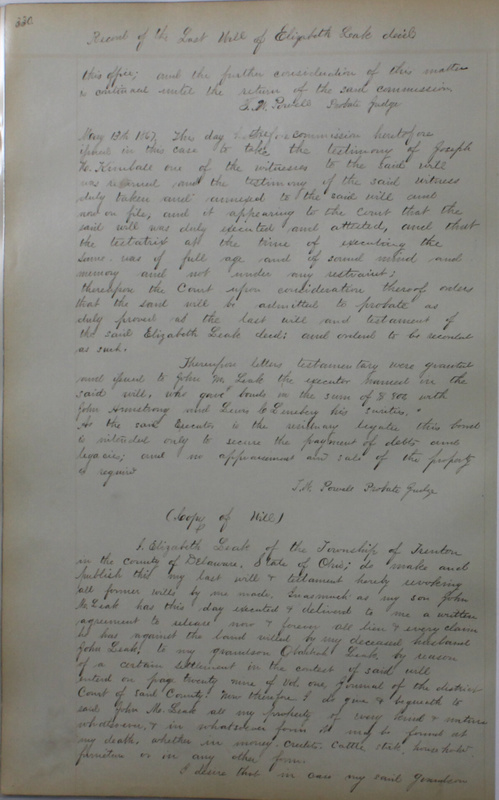 330
Record of the Last Will of Elizabeth Leak decd
this office; and the further consideration of this matter
is continued until the return of the said commission
T. W. Powell Probate Judge
May 13th 1867, This day commission heretofore
issued in this case to take the testimony of Joseph
W. Kimball one of the witnesses to the said will
was returned and the testimony of the said witness
duly taken and annexed to the said will and
are on file, and it appearing to the Court that the
said will was duly executed and attested, and that
the testatrix at the time of executing the
same was of full age and of sound mind and
memory and not under any restraint;
thereupon the Court upon consideration thereof orders
that the said will be admitted to probate as
duly proved as the last will and testament of
the said Elizabeth Leak decd: and ordered to be recorded
as such.
Thereupon letters testamentary were granted
and issued to John M. Leak the executor named in the
said will, who gave bonds in the sum of $ 800 with
John Armstrong and Lewis his sureties.
As the said Executor is the residuary legatee this bond
is intended only to secure the payment of debts and
legacies; and no appraisement and sale of the property
is required
T. W. Powell Probate Judge
(Copy of Will)
I, Elizabeth Leak of the Township of Trenton
in the county of Delaware, State of Ohio; do make and
publish this my last will & testament hereby revoking
all former wills by me made. Inasmuch as my son John
M. Leak has this day executed & delivered to me a written
agreement to release now & forever all lien & every claim
he has against the land willed by my deceased husband
John Leak, to my grandson Leak by reason
of a certain settlement in the contest of said will
entered on page twenty nine of Vol. one, Journal of the district
Court of said County: Now therefore I do give & bequeath to
said John M. Leak all my property of every kind & nature
whatsoever, & in whatsoever form it may be found at
my death, whether in money, credits, cattle, stock, household
furniture or in any other form
I desire that in case my said grandson